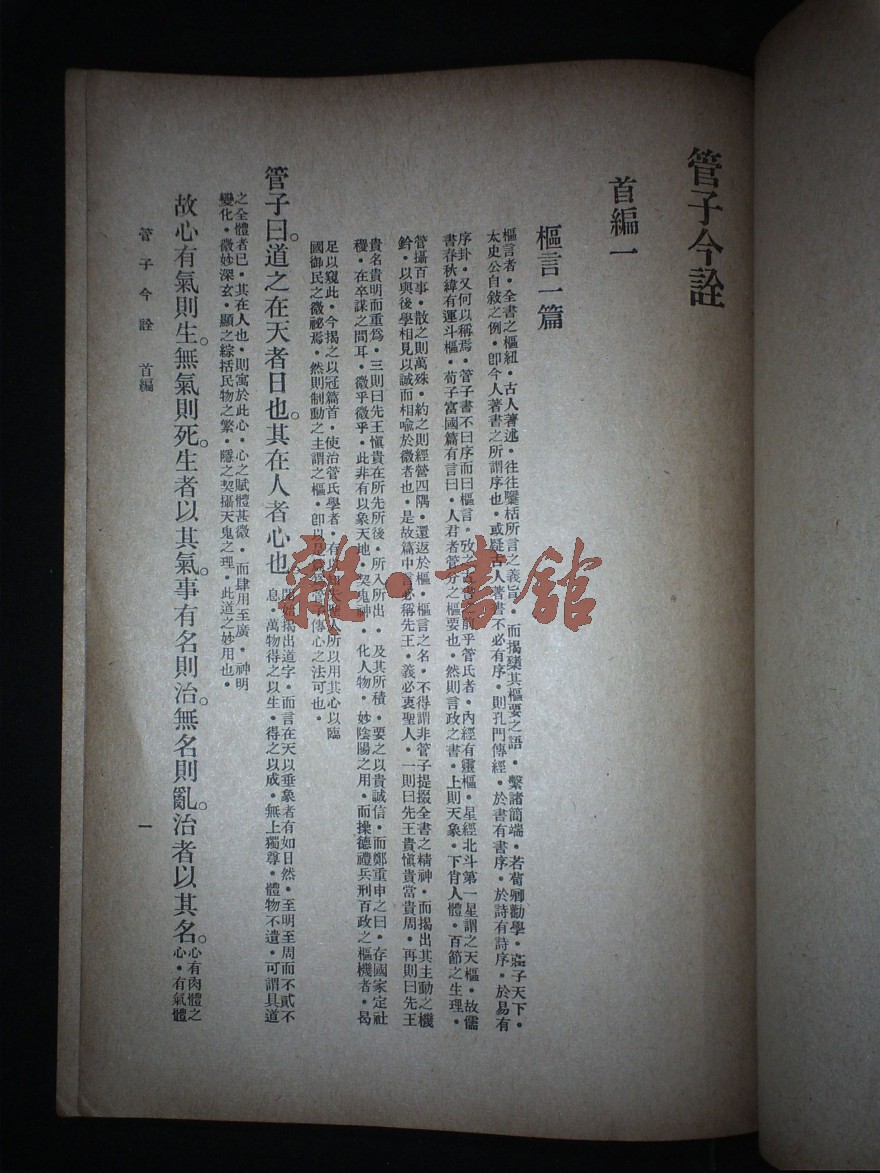 管子今詮
首編一
樞言一篇
樞言者・全書之樞紐・古人著述・往往檃栝所言之義旨・而揭櫫其樞要之語・繫諸簡端・若荀卿勸學・莊子天下・
太史公自敘之例・卽今人著書之所謂序也・或疑古人著書不必有序・則孔門傳經・於書有書序・於詩有詩序・於易有
序卦・又何以稱焉・管子書不曰序而曰樞言・攷之 前乎管氏者・內經有靈樞・星經北斗第一星謂之天樞・故儒
書春秋緯有運斗樞・荀子富國篇有言曰・人君者管分之樞要也・然則言政之書・上則天象・下肖人體・百節之生理・
管攝百事・散之則萬殊・約之則經營四隅・還返於樞・樞言之名・不得謂非管子提掇全書之精神・而揭出其主動之機
鈐・以與後學相見以誠而相喩於微者也・是故篇中言必稱先王・義必衷聖人・一則曰先王貴愼貴當貴周・再則曰先王
貴名貴明而重爲・三則曰先王愼貴在所先所後・所入所出・及其所積・要之以貴誠信・而鄭重申之曰・存國家定社
稷・在卒謀之間耳・微乎微乎・此非有以象天地・契鬼神・化人物・妙陰陽之用・而操德禮兵刑百政之樞機者・曷
足以窺此・今揭之以冠篇首・使治管氏學者・有以 人所以用其心以臨
國御民之微祕焉・然則制動之主謂之樞・卽以 傳心之法可也・
管子曰。道之在天者日也。其在人者心也。開始揭出道字・而言在天以垂象者有如日然・至明至周而不貳不
息・萬物得之以生・得之以成・無上獨尊・體物不遺・可謂具道
之全體者已・其在人也・則寓於此心・心之賦體甚微・而肆用至廣・神明
變化・微妙深玄・顯之綜括民物之繁・隱之契攝天鬼之理・此道之妙用也・
故心有氣則生。無氣則死。生者以其氣。事有名則治。無名則亂。治者以其名。心有肉體之
心・有氣體
管子今詮 首編
一
雜・書館